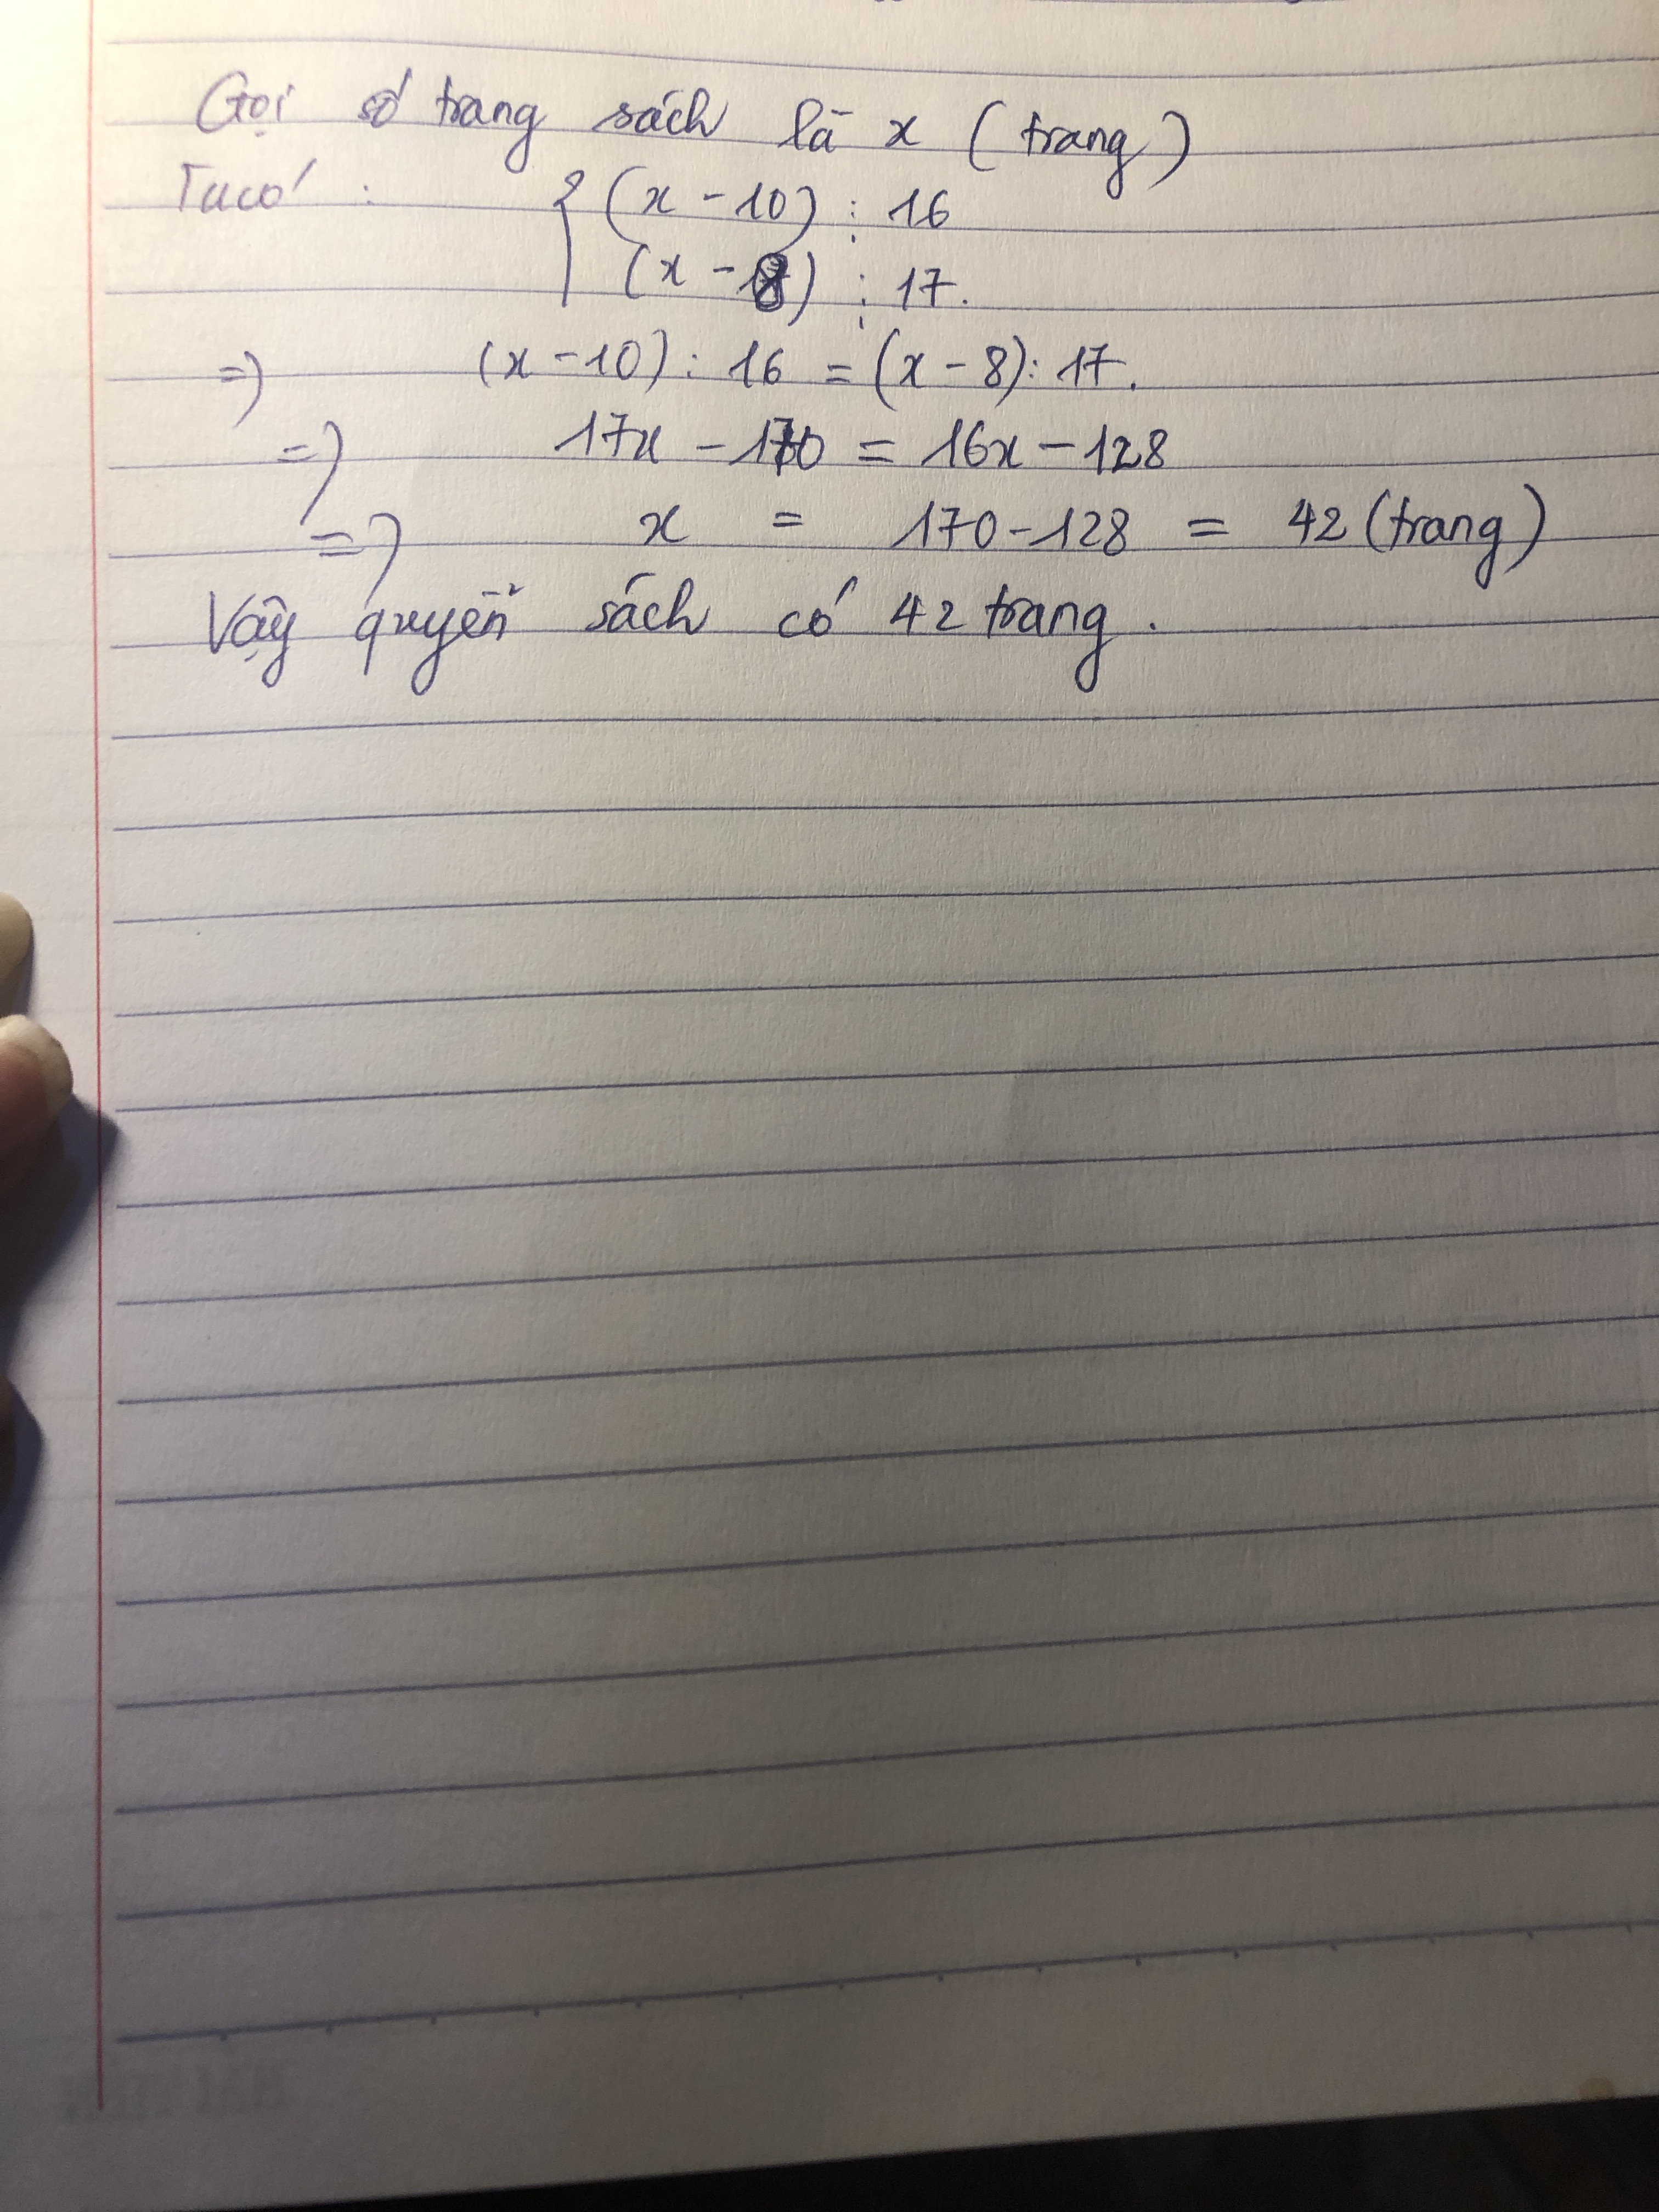 Gọi số trang sách là x (trang)
Ta có : { (x - 10) ⋮ 16
(x - 8) ⋮ 17.
=) (x - 10) : 16 = (x - 8) : 17.
=) 17x - 170 = 16x - 128
=) x = 170 - 128 = 42 (trang)
Vậy quyển sách có 42 trang.